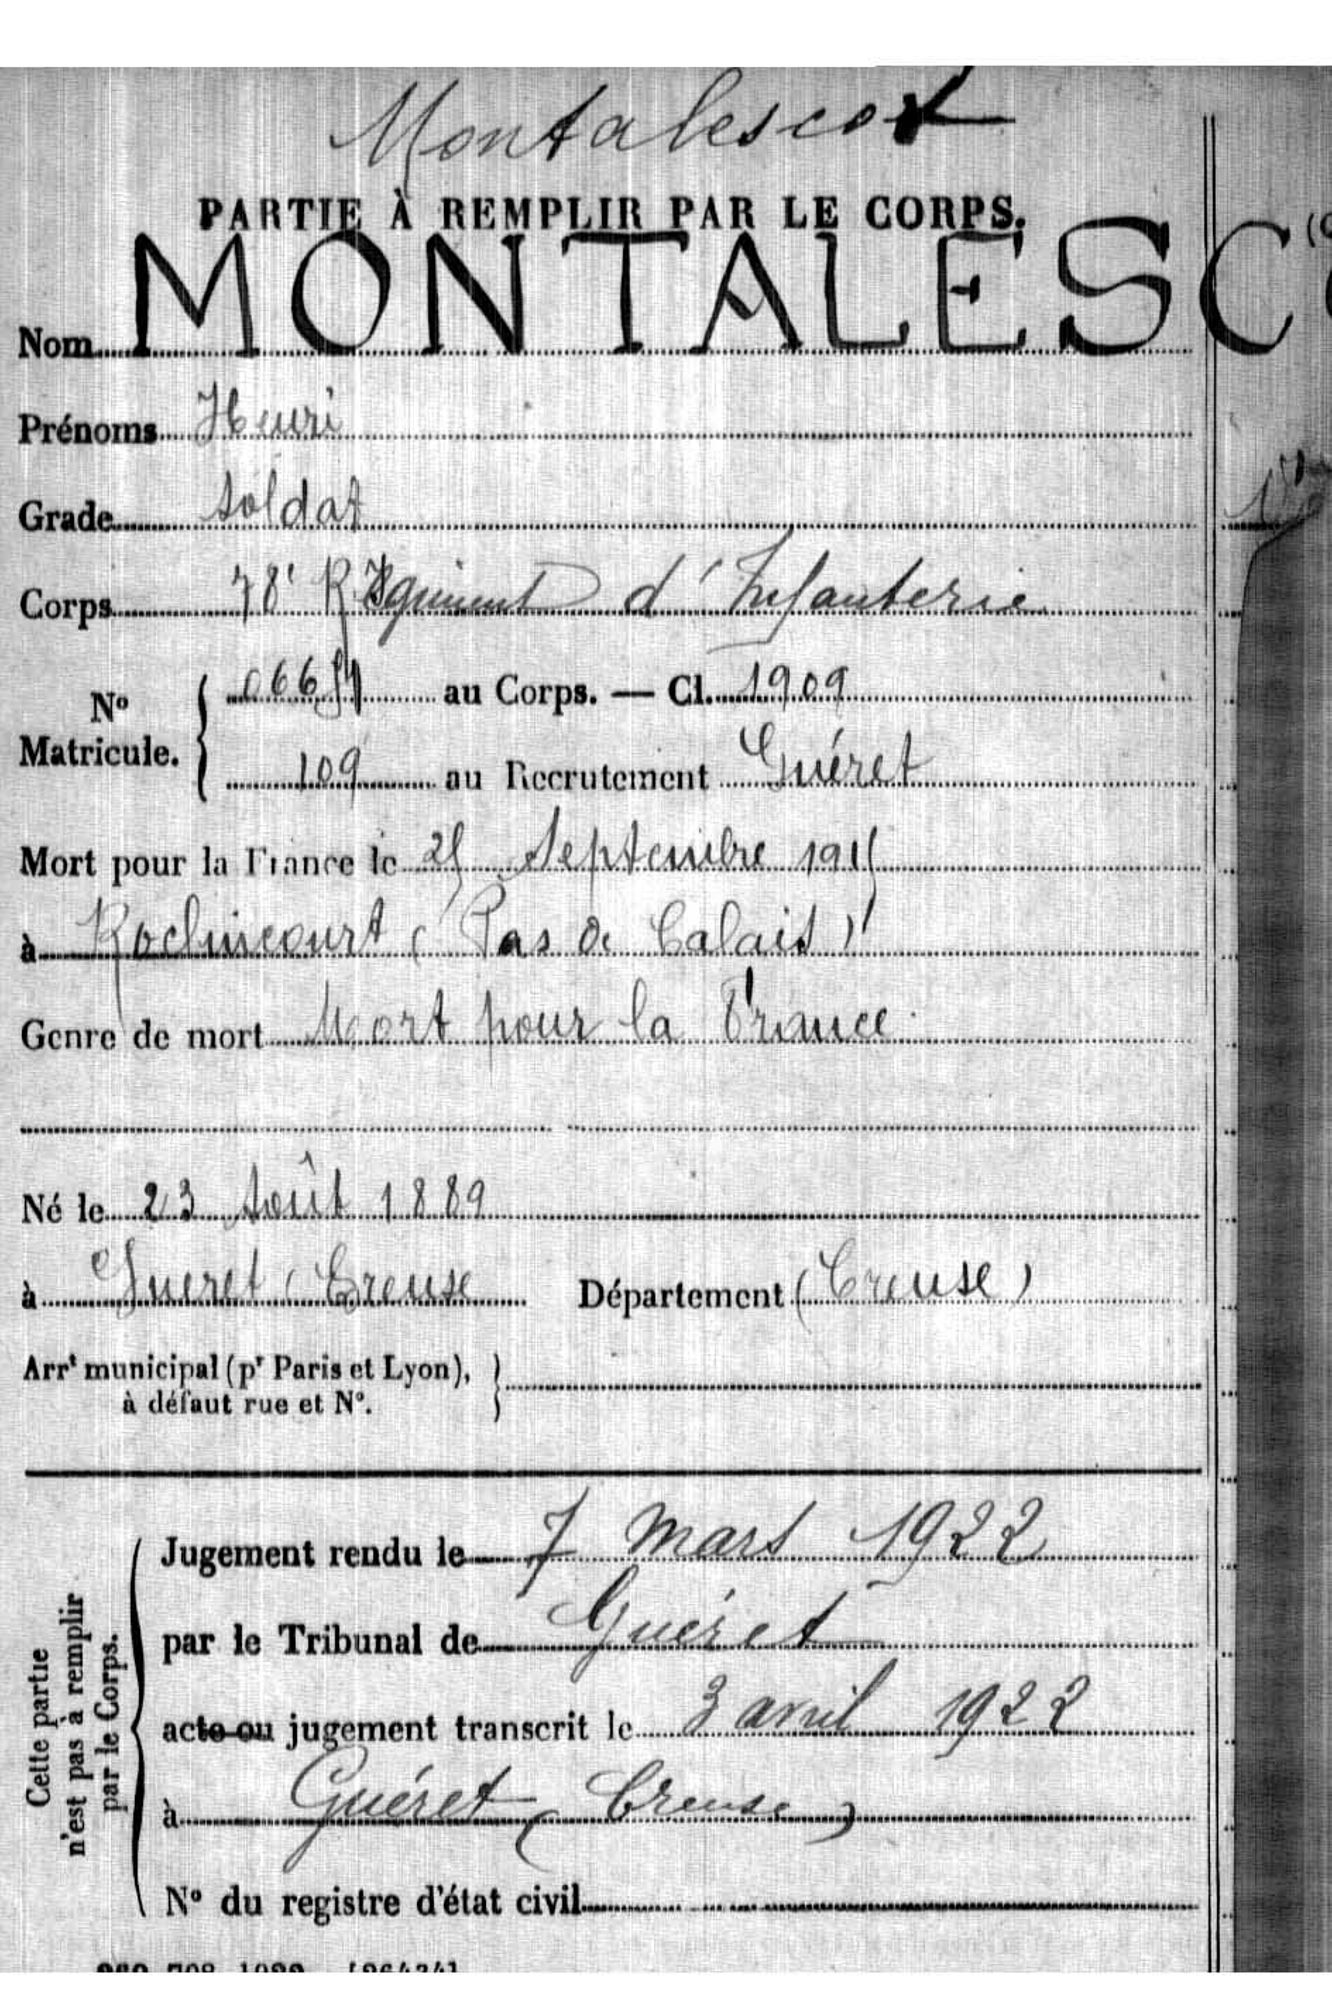 Montalescot
PARTIE À REMPLIR PAR LE CORPS.
Nom MONTALESC
Prénoms Henri
Grade soldat
Corps 78e Régiment d'Infanterie
No Matricule. { 06654 au Corps. — Cl. 1909
109 au Recrutement Guéret
Mort pour la France le 25 Septembre 1915
à Roclincourt (Pas de Calais)
Genre de mort Mort pour la France
Né le 23 Août 1889
à Gueret (Creuse Département (Creuse)
Arrt municipal (pr Paris et Lyon), }
à défaut rue et N°.
Cette partie
n'est pas à remplir
par le Corps.
Jugement rendu le 7 mars 1922
par le Tribunal de Guéret
acte ou jugement transcrit le 3 avril 1922
à Guéret (Creuse)
N° du registre d'état civil